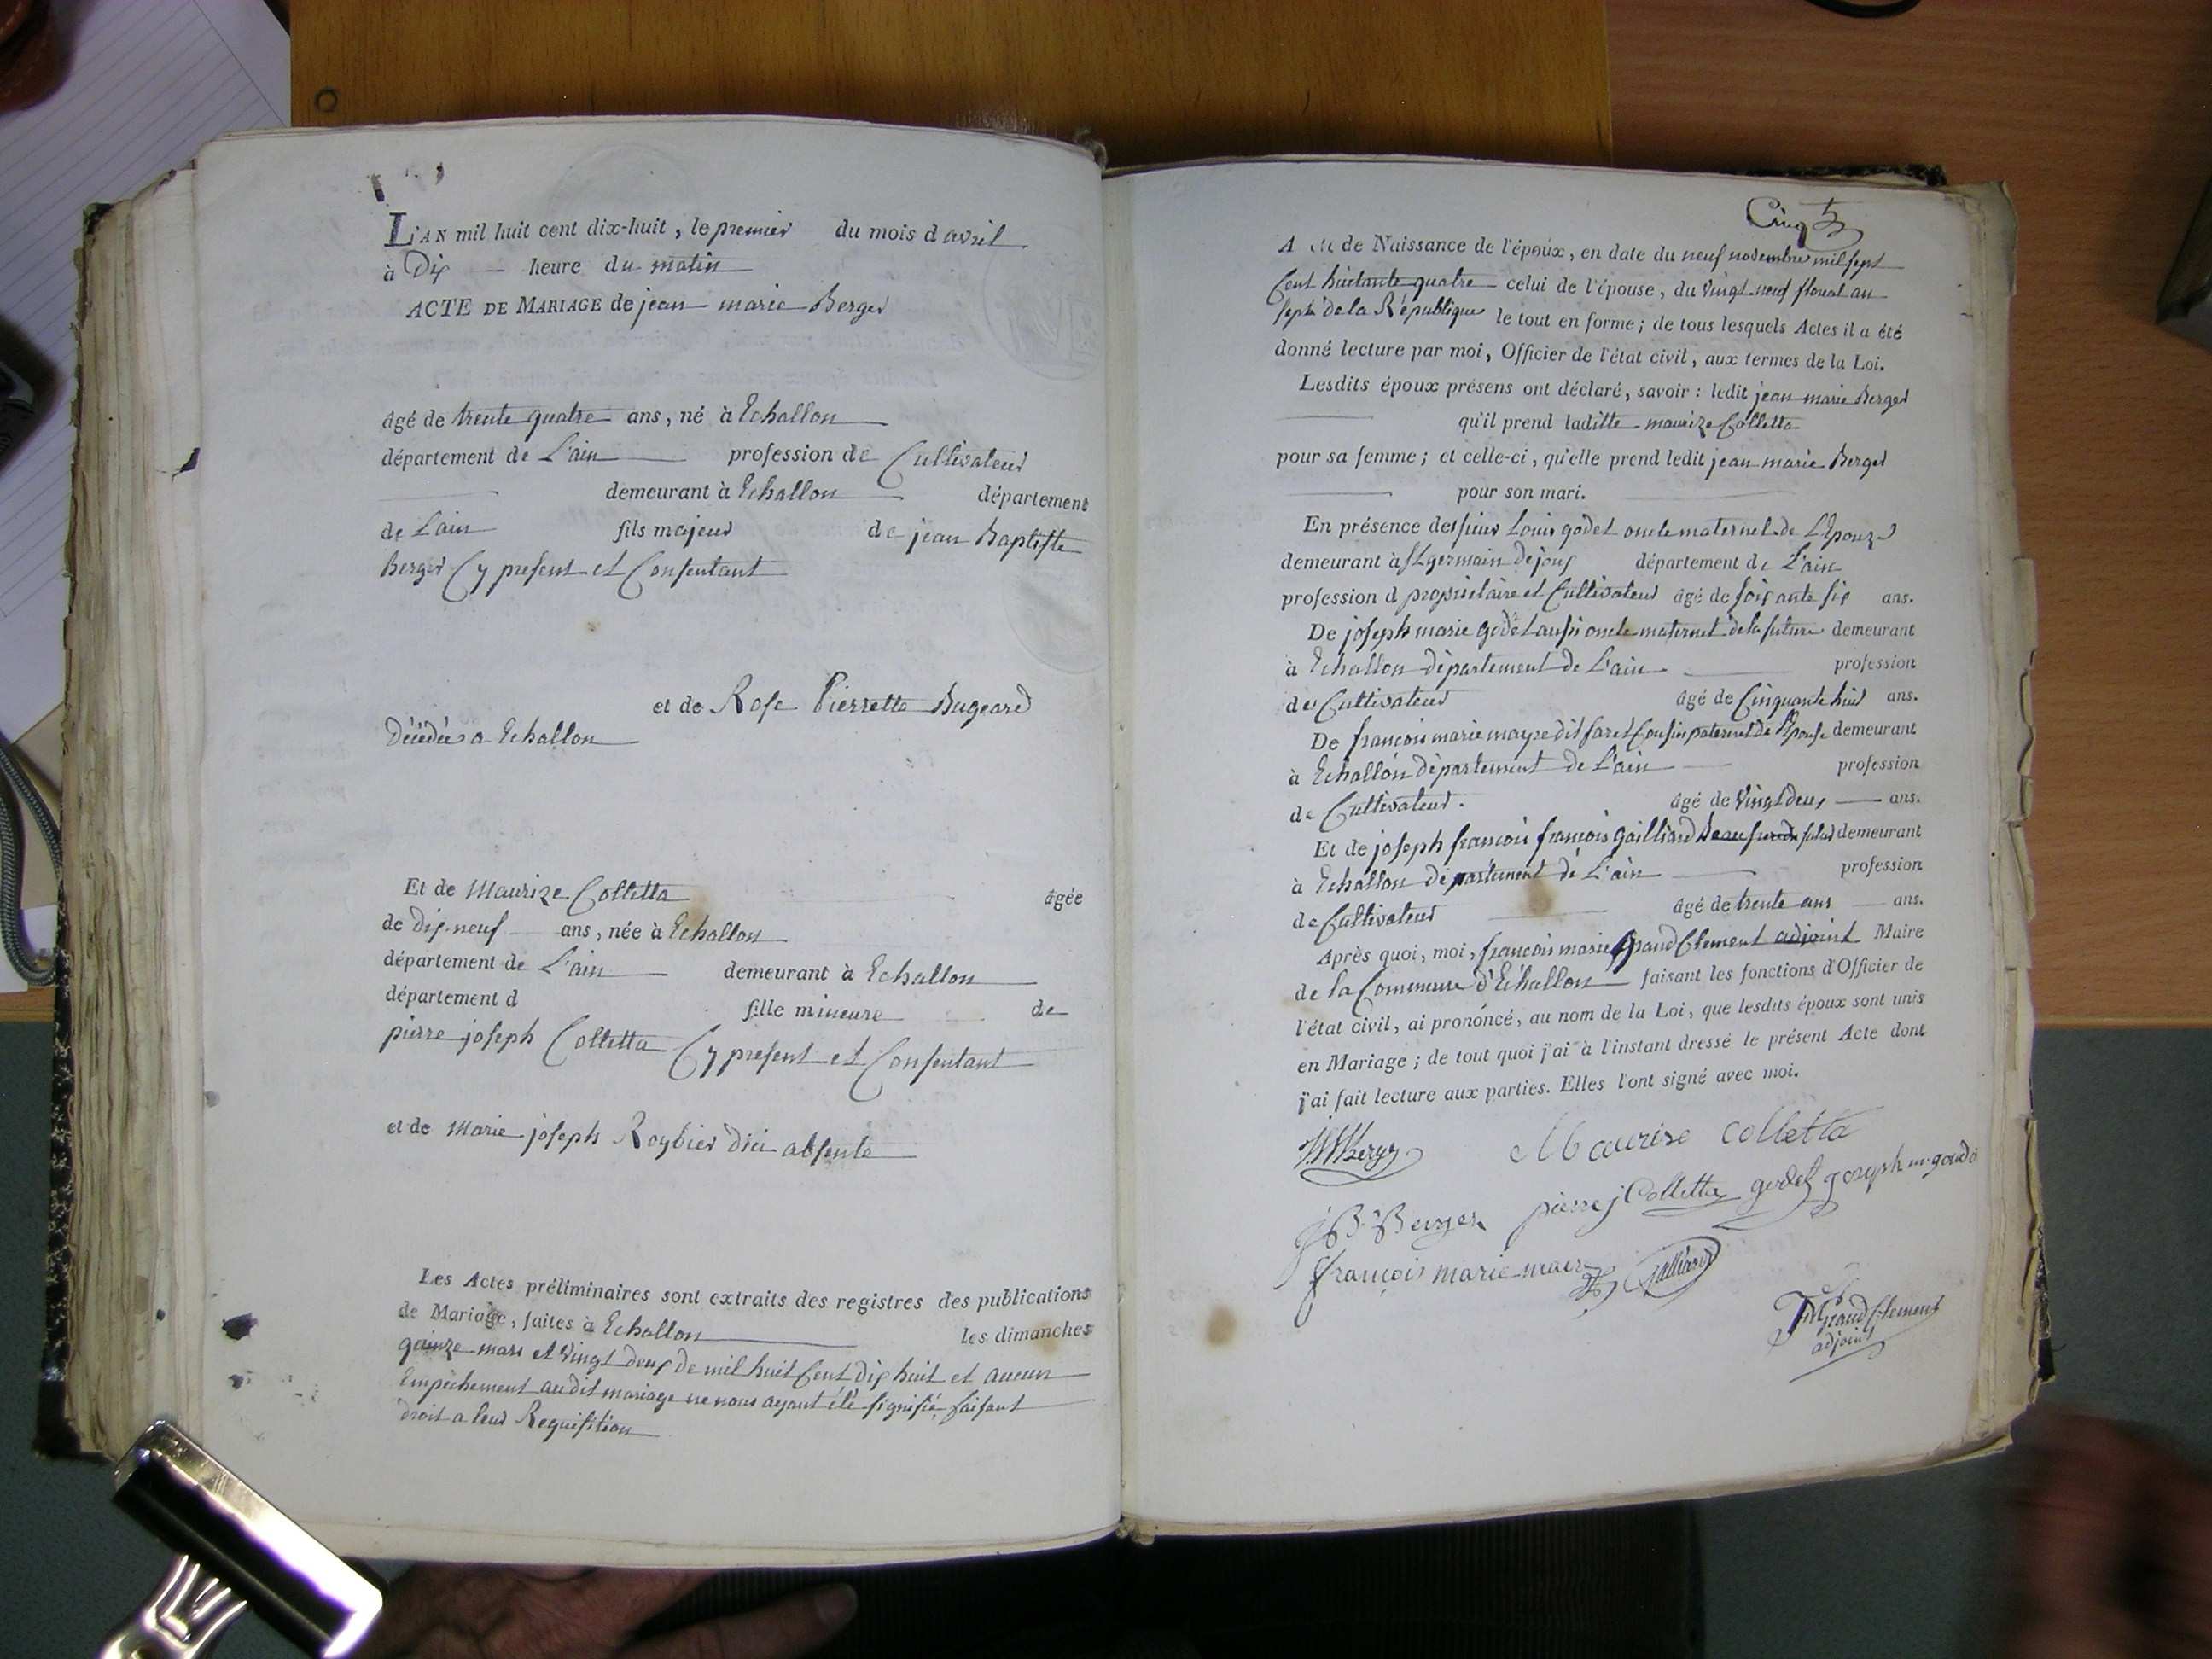 L'AN mil huit cent dix-huit, le premier du mois d avril
à Dix heure du matin
ACTE DE MARIAGE de jean marie Berger
âgé de trente quatre ans, né à Echallon
département de L'ain profession de Cultivateur
demeurant à Echallon département
de L'ain fils majeur de jean Baptiste
Berger Cy present et Consentant
et de Rose Pierrette Bugeard
Décédée a Echallon
Et de Maurize Colletta âgée
de dix neuf ans, née à Echallon
département de L'ain demeurant à Echallon
département d fille mineure de
pierre joseph Colletta Cy present et Consentant
et de Marie joseph Roybier dici absente
Les Actes préliminaires sont extraits des registres des publications
de Mariage, faites à Echallon les dimanches
quinze mars et vingt deux de mil huit Cent dix huit et aucun
Empêchement audit mariage ne nous ayant été signifié, faisant
droit a leur Requisition
Cinq 5
A de Naissance de l'époux, en date du neuf novembre mil sept
Cent huitante quatre celui de l'épouse, du vingt neuf floreal an
sept de la République le tout en forme; de tous lesquels Actes il a été
donné lecture par moi, Officier de l'état civil, aux termes de la Loi.
Lesdits époux présens ont déclaré, savoir : ledit jean marie Berger
qu'il prend laditte maurize Colletta
pour sa femme; et celle-ci, qu'elle prend ledit jean marie Berger
pour son mari.
En présence des sieur Louis godet oncle maternel de L'Epouze
demeurant à St germain dejoux département de L'ain
profession d propriétaire et Cultivateur âgé de soixante six ans.
De joseph marie godet aussi oncle maternel de la future demeurant
à Echallon département de L'ain profession
de Cultivateur âgé de Cinquante huit ans.
De françois marie mayre dit faret Cousin paternel de l'Epouse demeurant
à Echallon département de L'ain profession
de Cultivateur. âgé de vingt deux ans.
Et de joseph françois françois gailliard demeurant
à Echallon département de L'ain profession
de Cultivateur âgé de trente ans ans.
Après quoi, moi, françois marie grandClement adjoint Maire
de la Commune d'Echallon faisant les fonctions d'Officier de
l'état civil, ai prononcé, au nom de la Loi, que lesdits époux sont unis
en Mariage; de tout quoi j'ai à l'instant dressé le présent Acte dont
j'ai fait lecture aux parties. Elles l'ont signé avec moi.
Berger Maurise colletta
J B Berger pierre j Colletta godet joseph m goudé
françois marie mair Galliard
F M GrandClement
adjoint